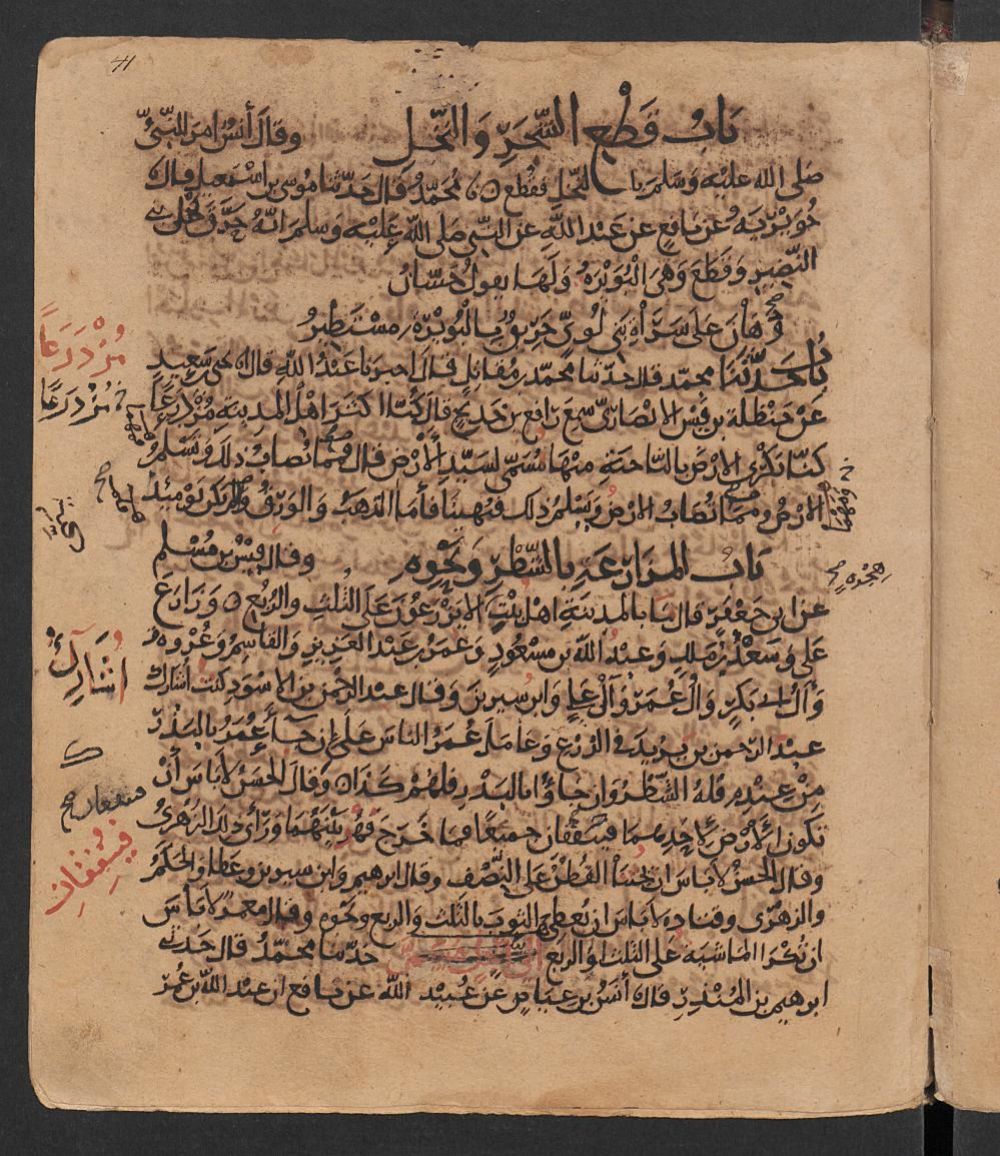 41
باب قطع الشجر والنخل وقال أنس امر النبي
صلى الله عليه وسلم بالنخل فقطع ٥ محمد قال حدثنا موسى بن اسمعيل قال
جويرية عن نافع عن عبد الله عن النبي صلى الله عليه وسلم انه حرق نخل بني
النضير وقطع وهي البويرة ولها يقول حسان
وهان على سراة بني لوي حريق بالبويرة مستطير
باب حدثنا محمد قال حدثنا محمد بن مقاتل قال اخبرنا عبد الله قال انا يحيى بن سعيد
عن حنظلة بن قيس الانصاري سمع رافع بن خديج قال كنا اكثر اهل المدينة مزدرعا
كنا نكري الارض بالناحية منها مسمى لسيد الأرض قال فمما نصاب ذلك وتسلم
الارض ومما تصاب الارض ويسلم ذلك فنهينا فأما الذهب والورق فلم يكن يومئذ
باب المزارعة بالشطر ونحوه وقال قيس بن مسلم
عن ابي جعفر قال ما بالمدينة اهل بيت الا يزرعون على الثلث والربع ٥ وزارع
علي وسعد بن ملك وعبد الله بن مسعود وعمر بن عبد العزيز والقاسم وعروة
وآل ابي بكر وآل عمر وآل علي وابن سيرين وقال عبد الرحمن بن الاسود كنت أشارك
عبد الرحمن بن يزيد في الزرع وعامل عمر الناس على إن جآء عمر بالبذر
من عنده فله الشطر وان جاؤا بالبذر فلهم كذا ٥ وقال الحسن لا باس أن
تكون الأرض لأحدهما فينفقان جميعا فما خرج فهو بينهما ورأى ذلك الزهري
وقال الحسن لا باس ان يجتنا القطن على النصف وقال ابرهيم وابن سيرين وعطا والحكم
والزهري وقتادة لا باس ان يعطى الثوب بالثلث والربع ونحوه وقال معمر لا باس
ان تكرا الماشية على الثلث او الربع حدثنا محمد قال حدثني
ابرهيم بن المنذر قال أنس بن عياض عن عبيد الله عن نافع ان عبد الله بن عمر
مزدرعا
مزدرعا
أشارك
فينفقان